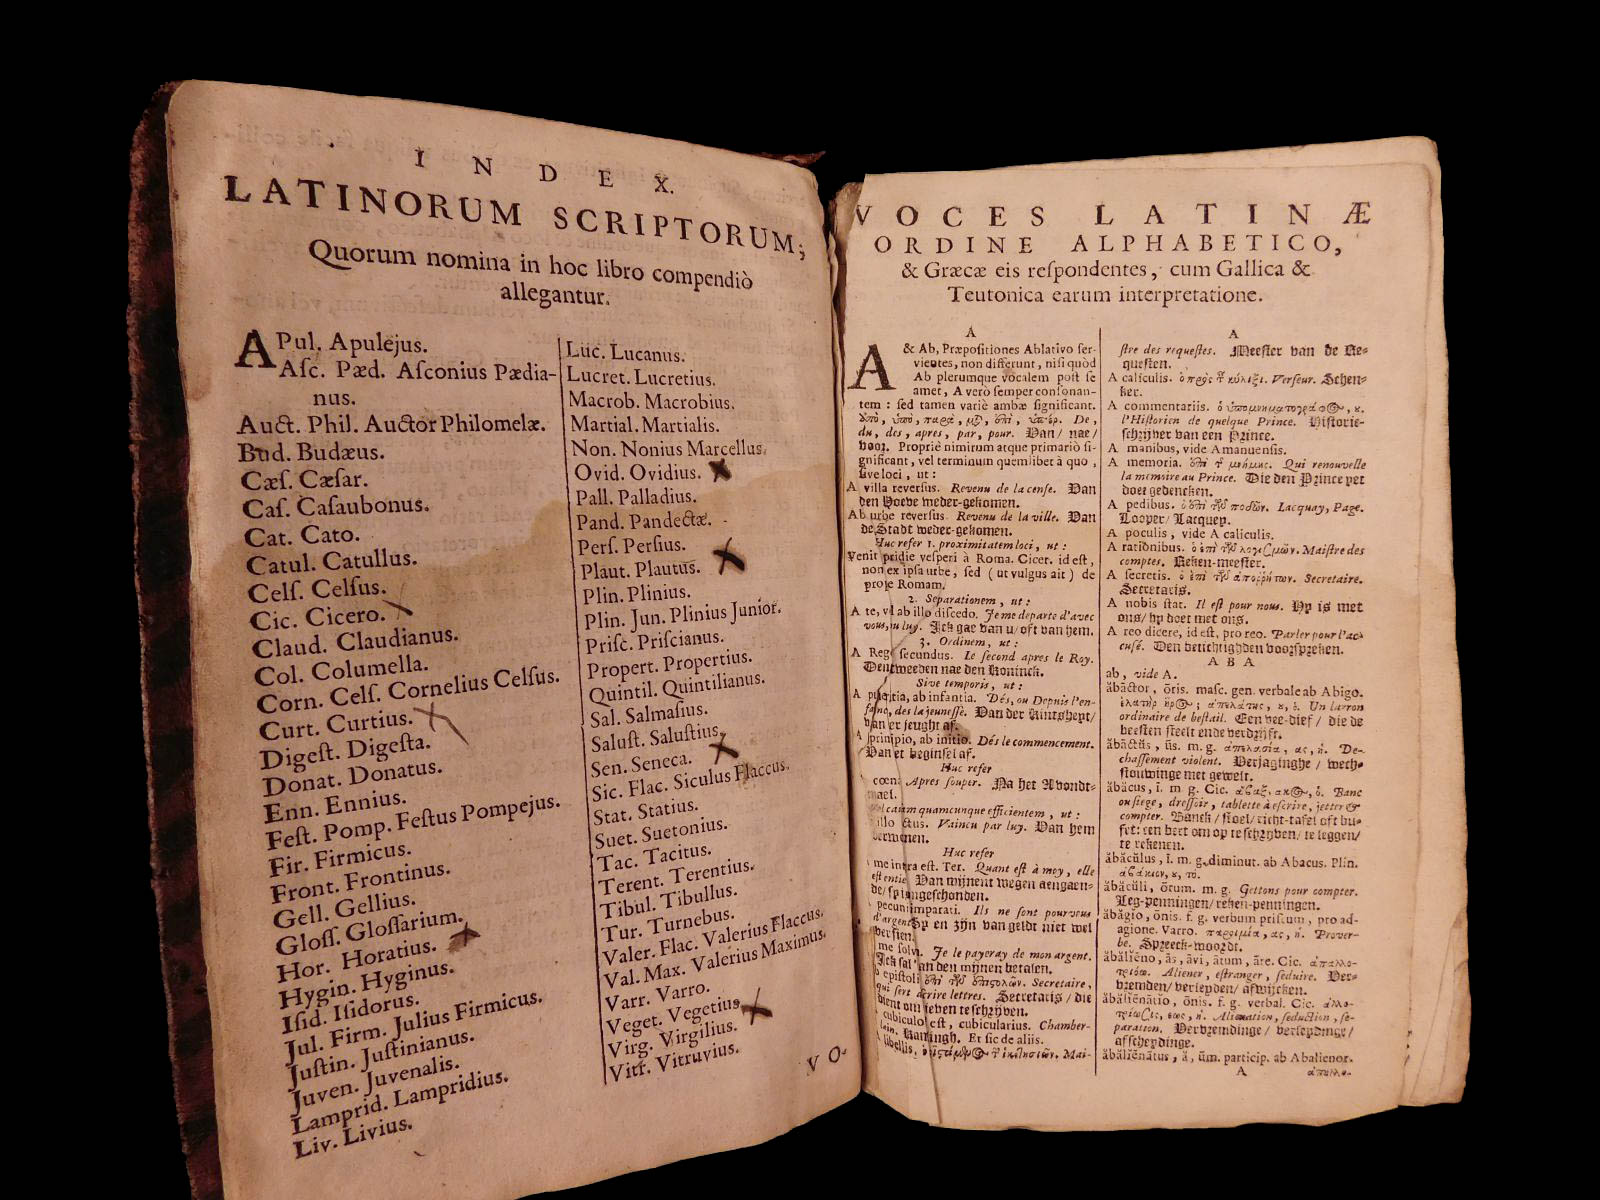 I N D E X.
LATINORUM SCRIPTORUM;
Quorum nomina in hoc libro compendiò
allegantur.
APul. Apulejus.
Aſc. Pæd. Aſconius Pædia-
nus.
Auct. Phil. Auctor Philomelæ.
Bud. Budæus.
Cæſ. Cæſar.
Caſ. Caſaubonus.
Cat. Cato.
Catul. Catullus.
Celſ. Celſus.
Cic. Cicero.
Claud. Claudianus.
Col. Columella.
Corn. Celſ. Cornelius Celſus.
Curt. Curtius.
Digeſt. Digeſta.
Donat. Donatus.
Enn. Ennius.
Feſt. Pomp. Feſtus Pompejus.
Fir. Firmicus.
Front. Frontinus.
Gell. Gellius.
Gloſſ. Gloſſarium.
Hor. Horatius.
Hygin. Hyginus.
Iſid. Iſidorus.
Jul. Firm. Julius Firmicus.
Juſtin. Juſtinianus.
Juven. Juvenalis.
Lamprid. Lampridius.
Liv. Livius.
Luc. Lucanus.
Lucret. Lucretius.
Macrob. Macrobius.
Martial. Martialis.
Non. Nonius Marcellus.
Ovid. Ovidius.
Pall. Palladius.
Pand. Pandectæ.
Perſ. Perſius.
Plaut. Plautus.
Plin. Plinius.
Plin. Jun. Plinius Junior.
Priſc. Priſcianus.
Propert. Propertius.
Quintil. Quintilianus.
Sal. Salmaſius.
Saluſt. Saluſtius.
Sen. Seneca.
Sic. Flac. Siculus Flaccus.
Stat. Statius.
Suet. Suetonius.
Tac. Tacitus.
Terent. Terentius.
Tibul. Tibullus.
Tur. Turnebus.
Valer. Flac. Valerius Flaccus.
Val. Max. Valerius Maximus.
Varr. Varro.
Veget. Vegetius.
Virg. Virgilius.
Vitr. Vitruvius.
VO-
VOCES LATINÆ
ORDINE ALPHABETICO,
& Græcæ eis reſpondentes, cum Gallica &
Teutonica earum interpretatione.
A
A & Ab, Præpoſitiones Ablativo ſer-
vientes, non differunt, niſi quòd
Ab plerumque vocalem poſt ſe
amet, A vero ſemper conſonan-
tem : ſed tamen variè ambæ ſignificant.
De,
du, des, apres, par, pour. Van/ nae/
voor. Propriè nimirum atque primariò ſi-
gnificant, vel terminum quemlibet à quo,
ſive loci, ut:
A villa reverſus. Revenu de la cenſe. Van
den Hoeve weder-gekomen.
Ab urbe reverſus. Revenu de la ville. Van
de Stadt weder-gekomen.
Huc refer 1. proximitatem loci, ut:
Venit pridie veſperi à Roma. Cicer. id eſt,
non ex ipſa urbe, ſed (ut vulgus ait) de
proje Romam.
2. Separationem, ut:
A te, vel ab illo diſcedo. Je me departe d'avec
vous, ou luy. Ick gae van u/ oft van hem.
3. Ordinem, ut:
A Rege ſecundus. Le ſecond apres le Roy.
Den tweeden nae den Koninck.
Sive temporis, ut:
A pueritia, ab infantia. Dés, ou Depuis l'en-
fance, des la jeuneſſe. Van der kintsheyt/
van er jeught af.
A principio, ab initio. Dés le commencement.
Van et beginſel af.
Huc refer
cœna Apres ſouper. Na het Avondt-
mael.
cauſam quamcunque efficientem, ut:
illo ctus. Vaincu par luy. Van hem
verwonen.
Huc refer
me intra eſt. Ter. Quant eſt à moy, elle
eſt entie Van mijnent wegen aengaen-
de/ ongeſchonden.
pecuni imparati. Ils ne ſont pourveus
d'argent Sy en zijn van geldt niet wel
verſien.
me ſolv. Je le payeray de mon argent.
Ick ſal 'an den mijnen betalen.
epiſtoli Secretaire,
qui ſert eſcrire lettres. Secretaris/ die
dient om ieven te ſchryven.
cubiculo eſt, cubicularius. Chamber-
lain. Et ſic de aliis.
libellis. Mai-
A
ſtre des requeſtes. Meeſter van de Re-
queſten.
A caliculis. Verſeur. Schen-
ker.
A commentariis.
l'Hiſtorien de quelque Prince. Hiſtorie-
ſchrijver van een Prince.
A manibus, vide Amanuenſis.
A memoria. Qui renouvelle
la memoire au Prince. Die den Prince yet
doet gedencken.
A pedibus. Lacquay, Page.
Looper/ Lacquey.
A poculis, vide A caliculis.
A rationibus. Maiſtre des
comptes. Reken-meeſter.
A ſecretis. Secretaire.
Secretaris.
A nobis ſtat. Il eſt pour nous. Hy is met
ons/ hy doet met ons.
A reo dicere, id eſt, pro reo. Parler pour l'ac-
cuſé. Den betichtighden voorſpreken.
A B A
ab, vide A.
ăbāctor, ōris. maſc. gen. verbale ab Abigo.
Un larron
ordinaire de beſtail. Een vee-dief/ die de
beeſten ſteelt ende verdrijft.
ăbāctŭs, ūs. m. g. De-
chaſſement violent. Verjaginghe/ wech-
ſtouwinge met gewelt.
ăbăcus, i. m. g. Cic. Banc
ou ſiege, dreſſoir, tablette à eſcrire, jetter &
compter. Banck/ ſtoel/ richt-tafel oft bu-
fet: een bert om op te ſchrijven/ te leggen/
te rekenen.
ăbăcŭlus, i. m. g. diminut. ab Abacus. Plin.
ăbăcŭli, ōrum. m. g. Gettons pour compter.
Leg-penningen/ reken-penningen.
ăbăgio, ōnis. f. g. verbum priſcum, pro ad-
agione. Varro. παροιμία, ας, ἡ. Prover-
be. Spreeck-woordt.
ăbălieno, ās, āvi, ātum, āre. Cic.
Aliener, eſtranger, ſeduire. Ver-
vremden/ verleyden/ afwijcken.
ăbălienātio, ōnis. f. g. verbal. Cic.
Alienation, ſeduction, ſe-
paration. Vervremdinge/ verleydinge/
afſcheydinge.
ăbălienātus, ă, ŭm. particip. ab Abalienor.
A